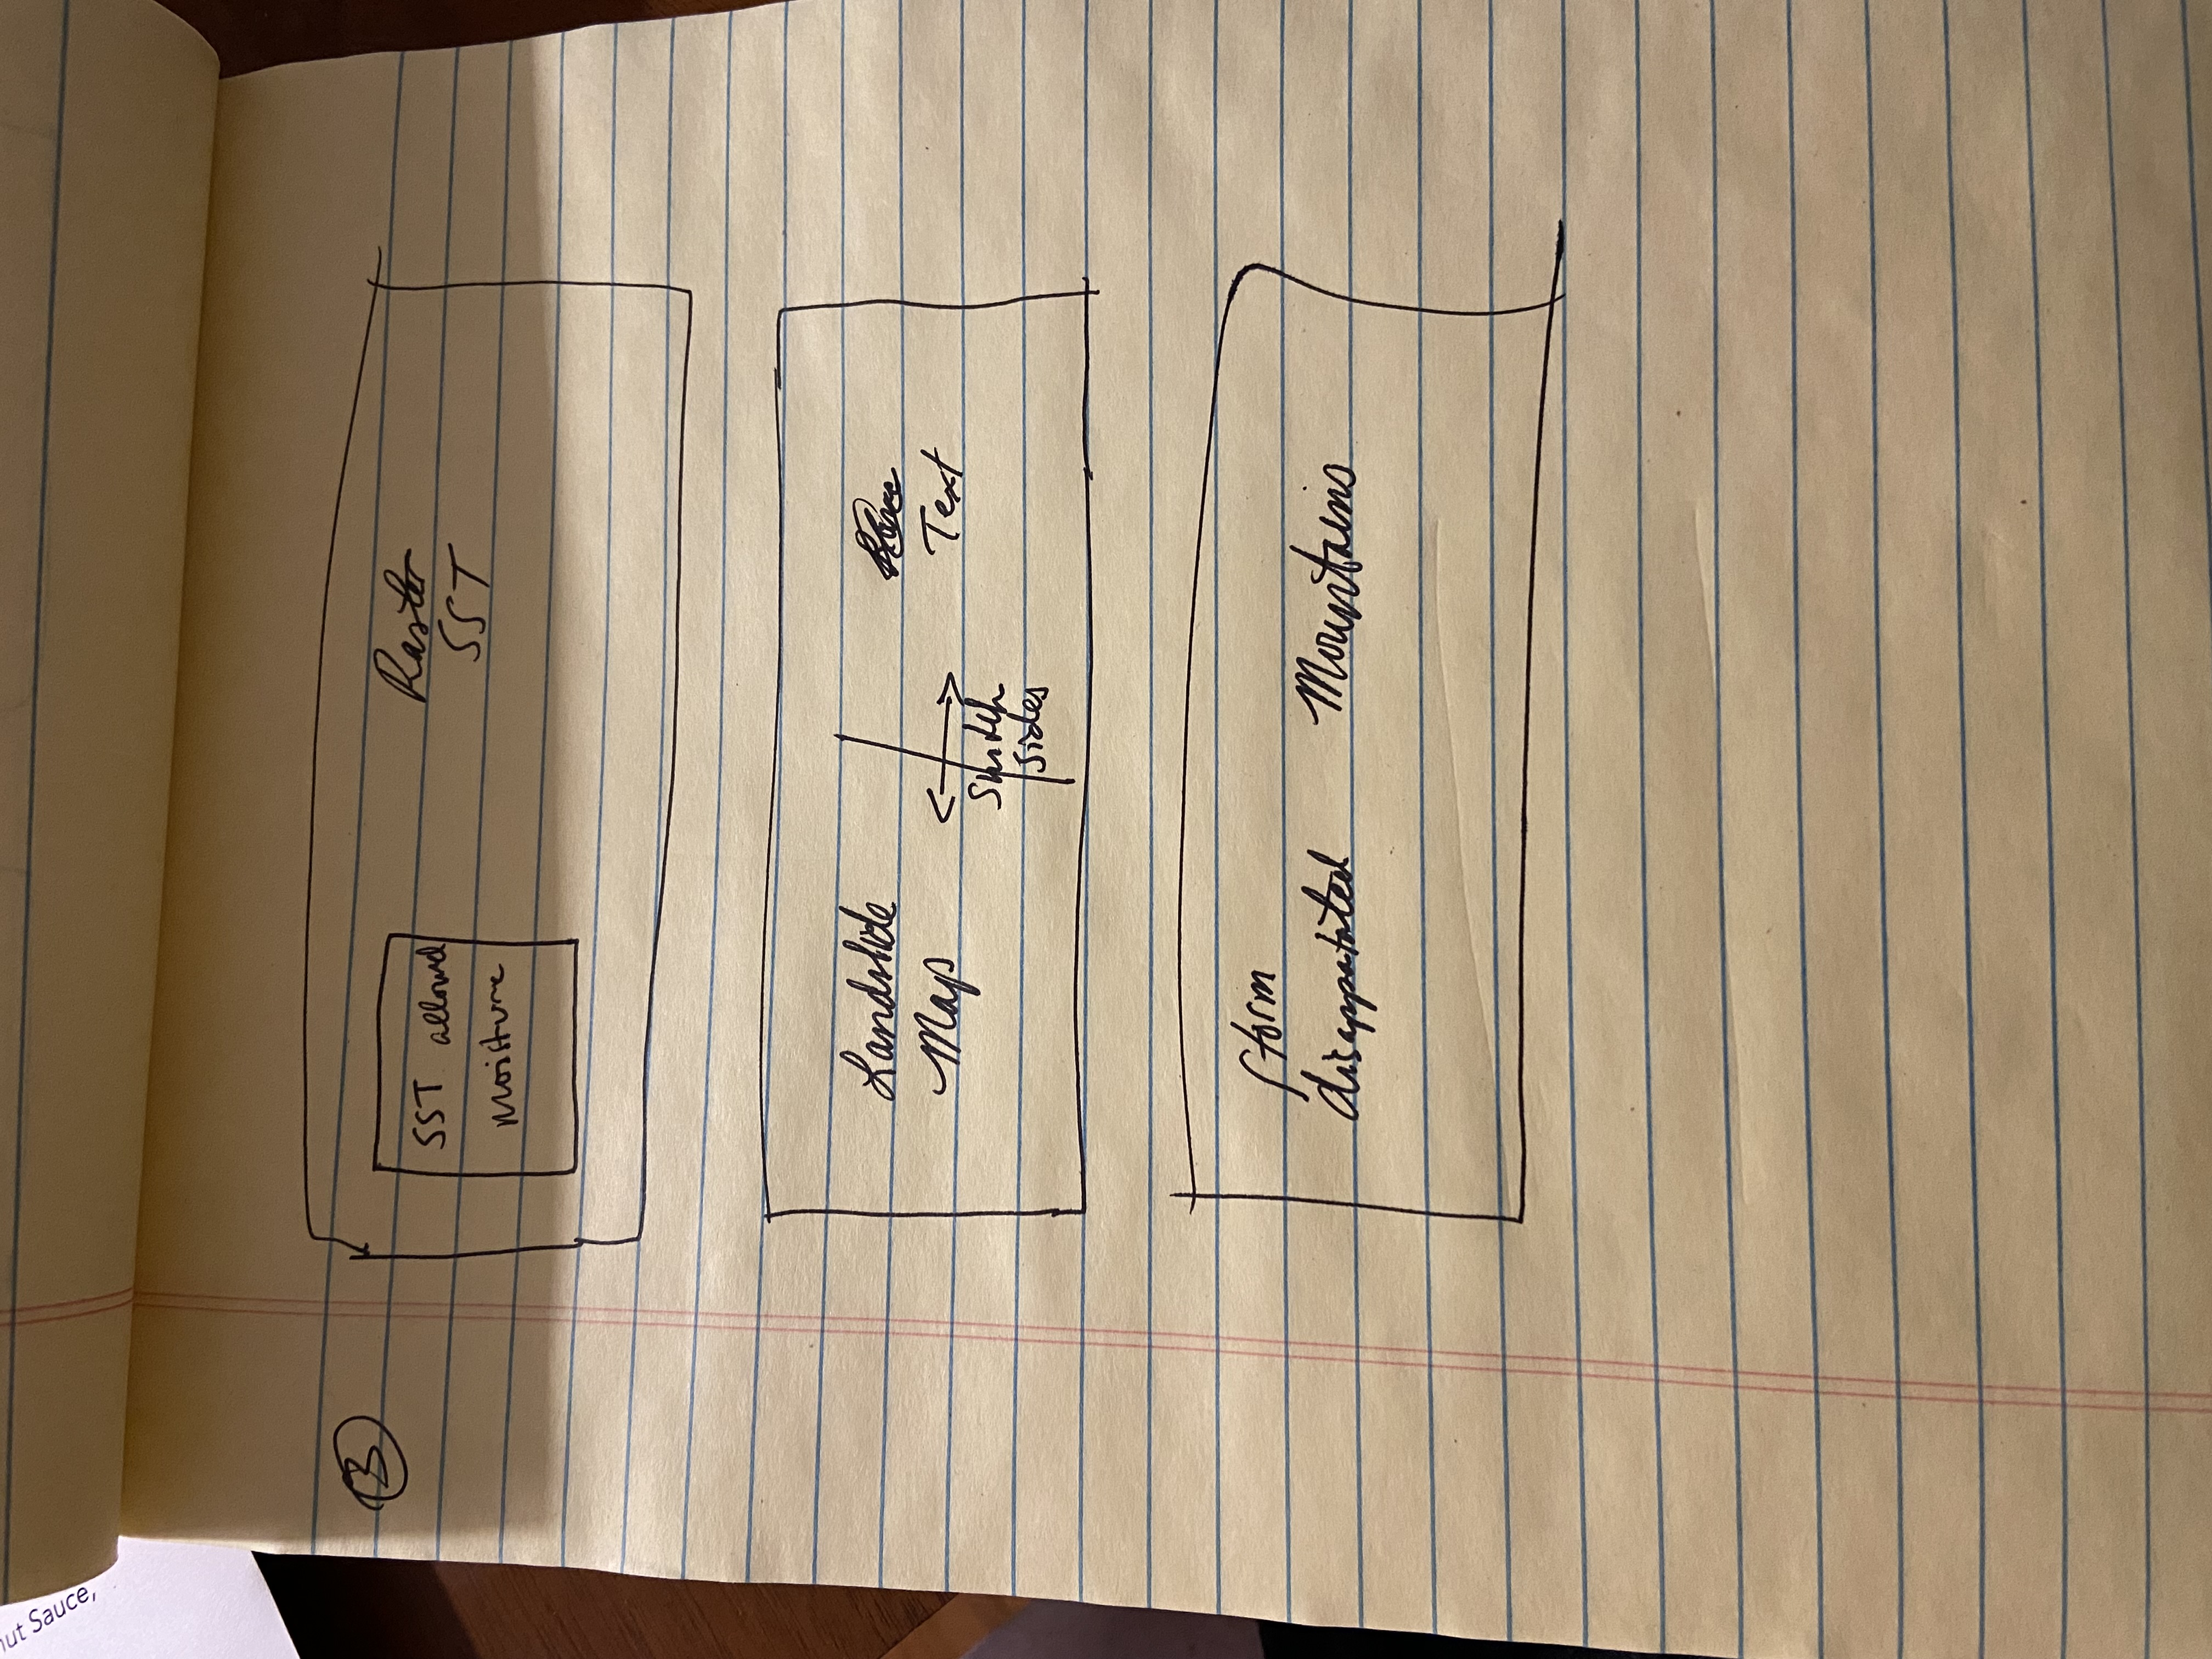 nut Sauce,
3
SST allowed
moisture
Raster
SST
Landslide
Map
Text
Switch
sides
Storm
disappatated
Mountains